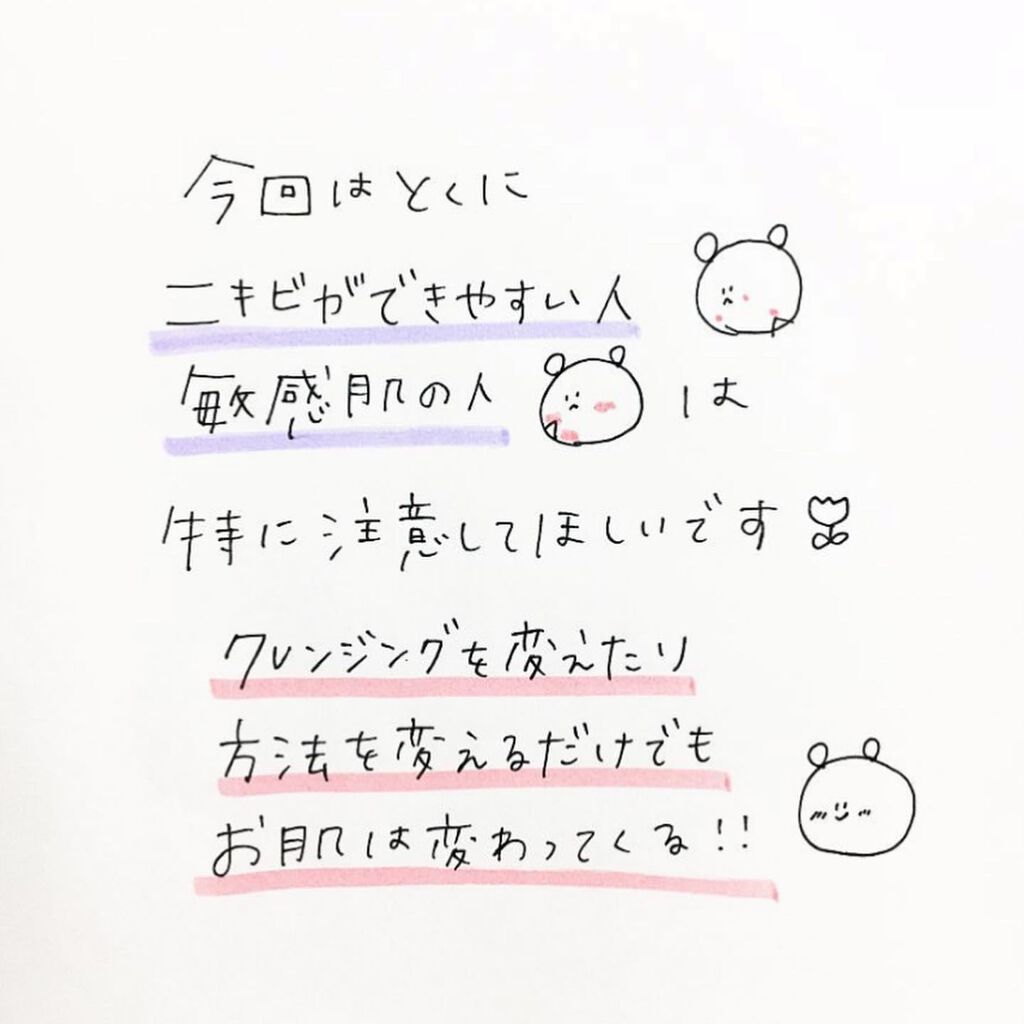 今回はとくに
ニキビができやすい人
敏感肌の人 は
特に注意してほしいです
クレンジングを変えたり
方法を変えるだけでも
お肌は変わってくる!!